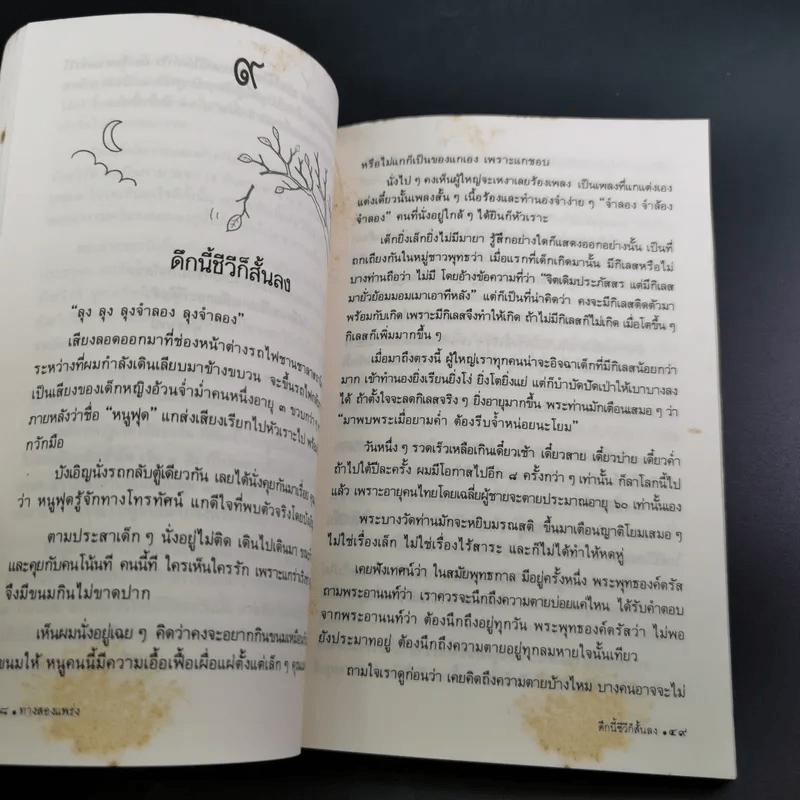 ๙
ดึกนี้ชีวีก็สั้นลง
“ลุง ลุง ลุงจำลอง ลุงจำลอง”
เสียงลอดออกมาที่ช่องหน้าต่างรถไฟชานชาลา
ระหว่างที่ผมกำลังเดินเลียบมาข้างขบวน จะขึ้นรถไฟ
เป็นเสียงของเด็กหญิงอ้วนจ้ำม่ำคนหนึ่งอายุ ๓ ขวบกว่า
ภายหลังว่าชื่อ “หนูฟุด” แกส่งเสียงเรียกไปหัวเราะไป
กวักมือ
บังเอิญนั่งรถกลับตู้เดียวกัน เลยได้นั่งคุยกันมาเรื่อย
ว่า หนูฟุดรู้จักทางโทรทัศน์ แกดีใจที่พบตัวจริงโดยบังเอิญ
ตามประสาเด็กๆ นั่งอยู่ไม่ติด เดินไปเดินมา
และคุยกับคนโน้นที คนนี้ที ใครเห็นใครรัก เพราะแกร่าเริง
จึงมีขนมกินไม่ขาดปาก
เห็นผมนั่งอยู่เฉยๆ คิดว่าคงจะอยากกินขนมเหมือน
ขนมให้ หนูคนนี้มีความเอื้อเฟื้อเผื่อแผ่ตั้งแต่เล็กๆ
๘ • ทางสองแพร่ง
หรือไม่แกก็เป็นของแกเอง เพราะแกชอบ
นั่งไปๆ คงเห็นผู้ใหญ่จะเหงาเลยร้องเพลง เป็นเพลงที่แกแต่งเอง
แต่งเดี๋ยวนั้นเพลงสั้นๆ เนื้อร้องและทำนองจำง่ายๆ “จำลอง จำล้อง
จำลอง” คนที่นั่งอยู่ใกล้ๆ ได้ยินก็หัวเราะ
เด็กยิ่งเล็กยิ่งไม่มีมายา รู้สึกอย่างใดก็แสดงออกอย่างนั้น เป็นที่
ถกเถียงกันในหมู่ชาวพุทธว่า เมื่อแรกที่เด็กเกิดมานั้น มีกิเลสหรือไม่
บางท่านถือว่า ไม่มี โดยอ้างข้อความที่ว่า “จิตเดิมประภัสสร แต่มีกิเลส
มายั่วย้อมมอมเมาเอาทีหลัง” แต่ก็เป็นที่น่าคิดว่า คงจะมีกิเลสติดตัวมา
พร้อมกับเกิด เพราะมีกิเลสจึงทำให้เกิด ถ้าไม่มีกิเลสก็ไม่เกิด เมื่อโตขึ้นๆ
กิเลสก็เพิ่มมากขึ้นๆ
เมื่อมาถึงตรงนี้ ผู้ใหญ่เราทุกคนน่าจะอิจฉาเด็กที่มีกิเลสน้อยกว่า
มาก เข้าทำนองยิ่งเรียนยิ่งโง่ ยิ่งโตยิ่งแย่ แต่ก็บำบัดปัดเป่าให้เบาบางลง
ได้ ถ้าตั้งใจจะลดกิเลสจริงๆ ยิ่งอายุมากขึ้น พระท่านมักเตือนเสมอๆ ว่า
“มาพบพระเมื่อยามค่ำ ต้องรีบจ้ำหน่อยนะโยม”
วันหนึ่งๆ รวดเร็วเหลือเกินเดี๋ยวเช้า เดี๋ยวสาย เดี๋ยวบ่าย เดี๋ยวค่ำ
ถ้าไปใต้ปีละครั้ง ผมมีโอกาสไปอีก ๘ ครั้งกว่าๆ เท่านั้น ก็ลาโลกนี้ไป
แล้ว เพราะอายุคนไทยโดยเฉลี่ยผู้ชายจะตายประมาณอายุ ๖๐ เท่านั้นเอง
พระบางวัดท่านมักจะหยิบมรณสติ ขึ้นมาเตือนญาติโยมเสมอๆ
ไม่ใช่เรื่องเล็ก ไม่ใช่เรื่องไร้สาระ และก็ไม่ได้ทำให้หดหู่
เคยฟังเทศน์ว่า ในสมัยพุทธกาล มีอยู่ครั้งหนึ่ง พระพุทธองค์ตรัส
ถามพระอานนท์ว่า เราควรจะนึกถึงความตายบ่อยแค่ไหน ได้รับคำตอบ
จากพระอานนท์ว่า ต้องนึกถึงอยู่ทุกวัน พระพุทธองค์ตรัสว่า ไม่พอ
ยังประมาทอยู่ ต้องนึกถึงความตายอยู่ทุกลมหายใจนั้นเทียว
ถามใจเราดูก่อนว่า เคยคิดถึงความตายบ้างไหม บางคนอาจจะไม่
ดึกนี้ชีวีก็สั้นลง • ๕๙